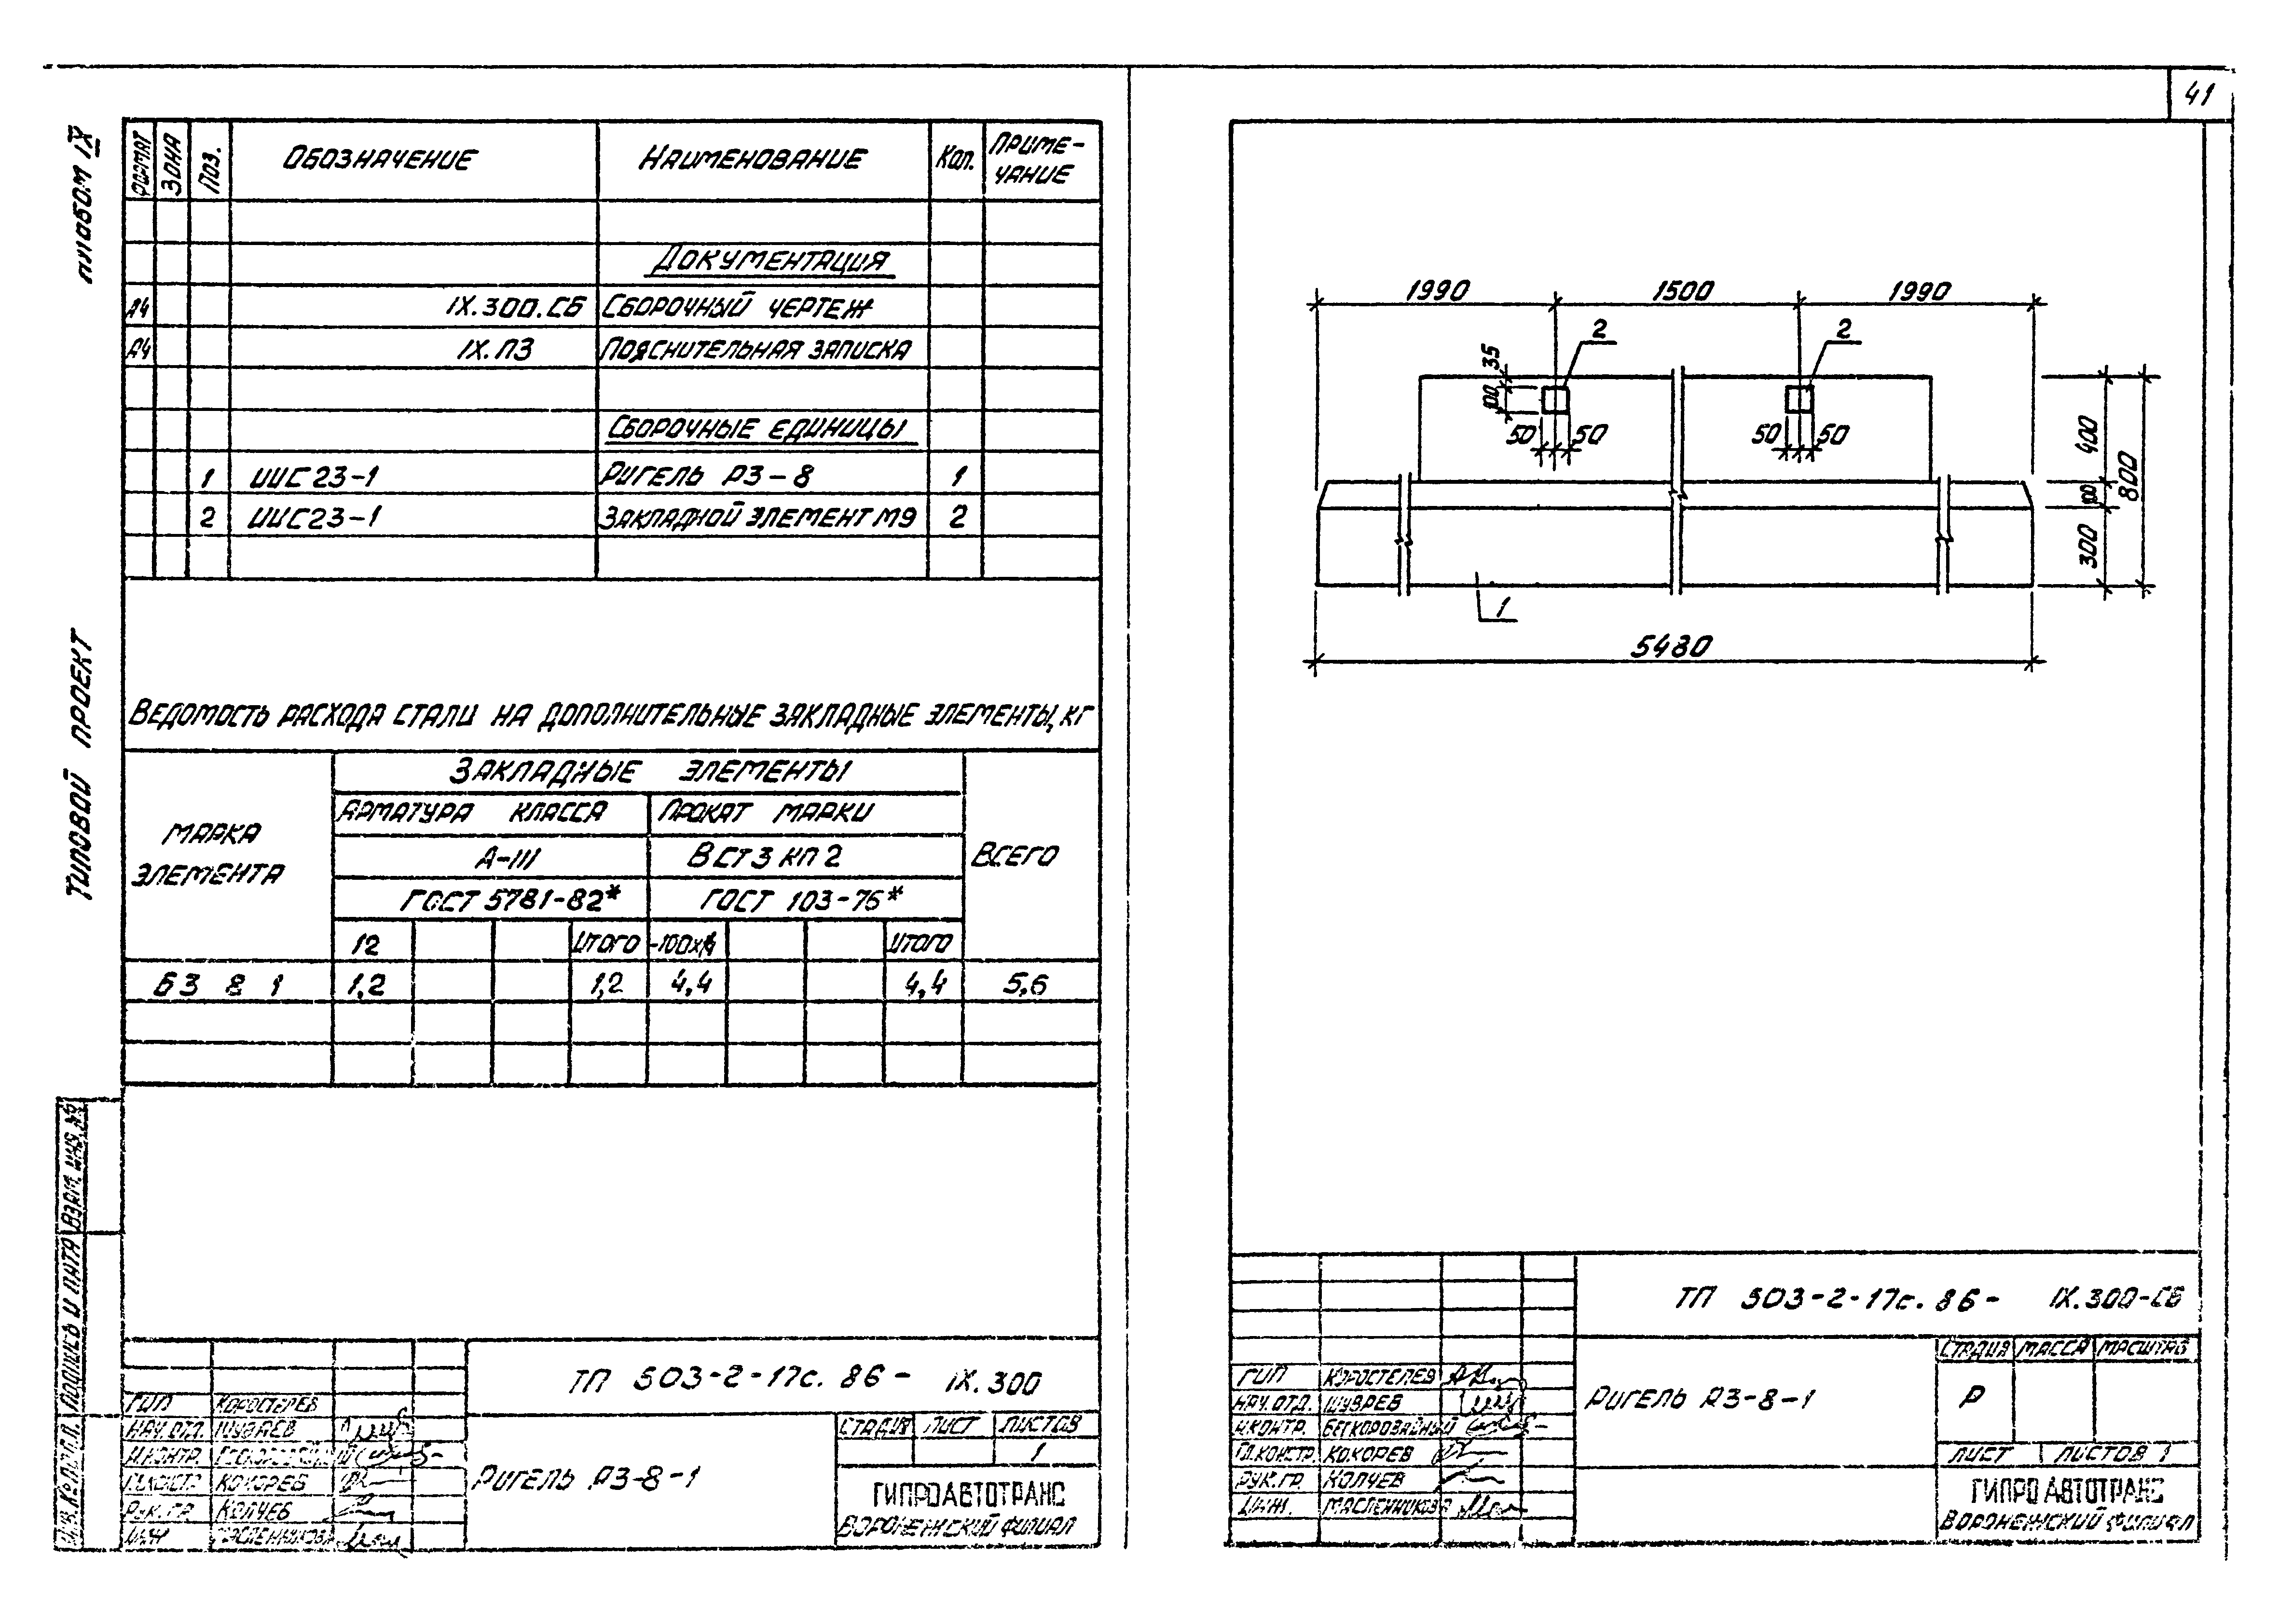 41
Альбом IX
Типовой проект
Формат Зона Поз. Обозначение Наименование Кол. Приме-
чание
Документация
А4 IX.300.СБ Сборочный чертеж
А4 IX.ПЗ Пояснительная записка
Сборочные единицы
1 ИИС23-1 Ригель Р3-8 1
2 ИИС23-1 Закладной элемент М9 2
Ведомость расхода стали на дополнительные закладные элементы, кг
Марка
элемента
Закладные элементы
Всего
Арматура класса Прокат марки
А-III В Ст 3 кп 2
ГОСТ 5781-82* ГОСТ 103-76*
12 Итого Итого
Б3 8 1 1,2 1,2 4,4 4,4 5,6
Подпись и дата Взам. инв. №
ТП 503-2-17с.86- IX.300
ГИП Коростелев
Нач.отд. Шуваев
Н.контр.
Гл.констр. Кокорев
Рук.гр. Колчев
Инж. Масленникова
Ригель Р3-8-1
Стадия Лист Листов
1
ГИПРОАВТОТРАНС
Воронежский филиал
1990 1500 1990
2 2
35
100
50 50 50 50
400
100
300
800
1
5480
ТП 503-2-17с.86- IX.300-СБ
ГИП Коростелев
Нач.отд. Шуваев
Н.контр.
Гл.констр. Кокорев
Рук.гр. Колчев
Инж. Масленникова
Ригель Р3-8-1
Стадия Масса Масштаб
Р
Лист Листов 1
ГИПРОАВТОТРАНС
Воронежский филиал